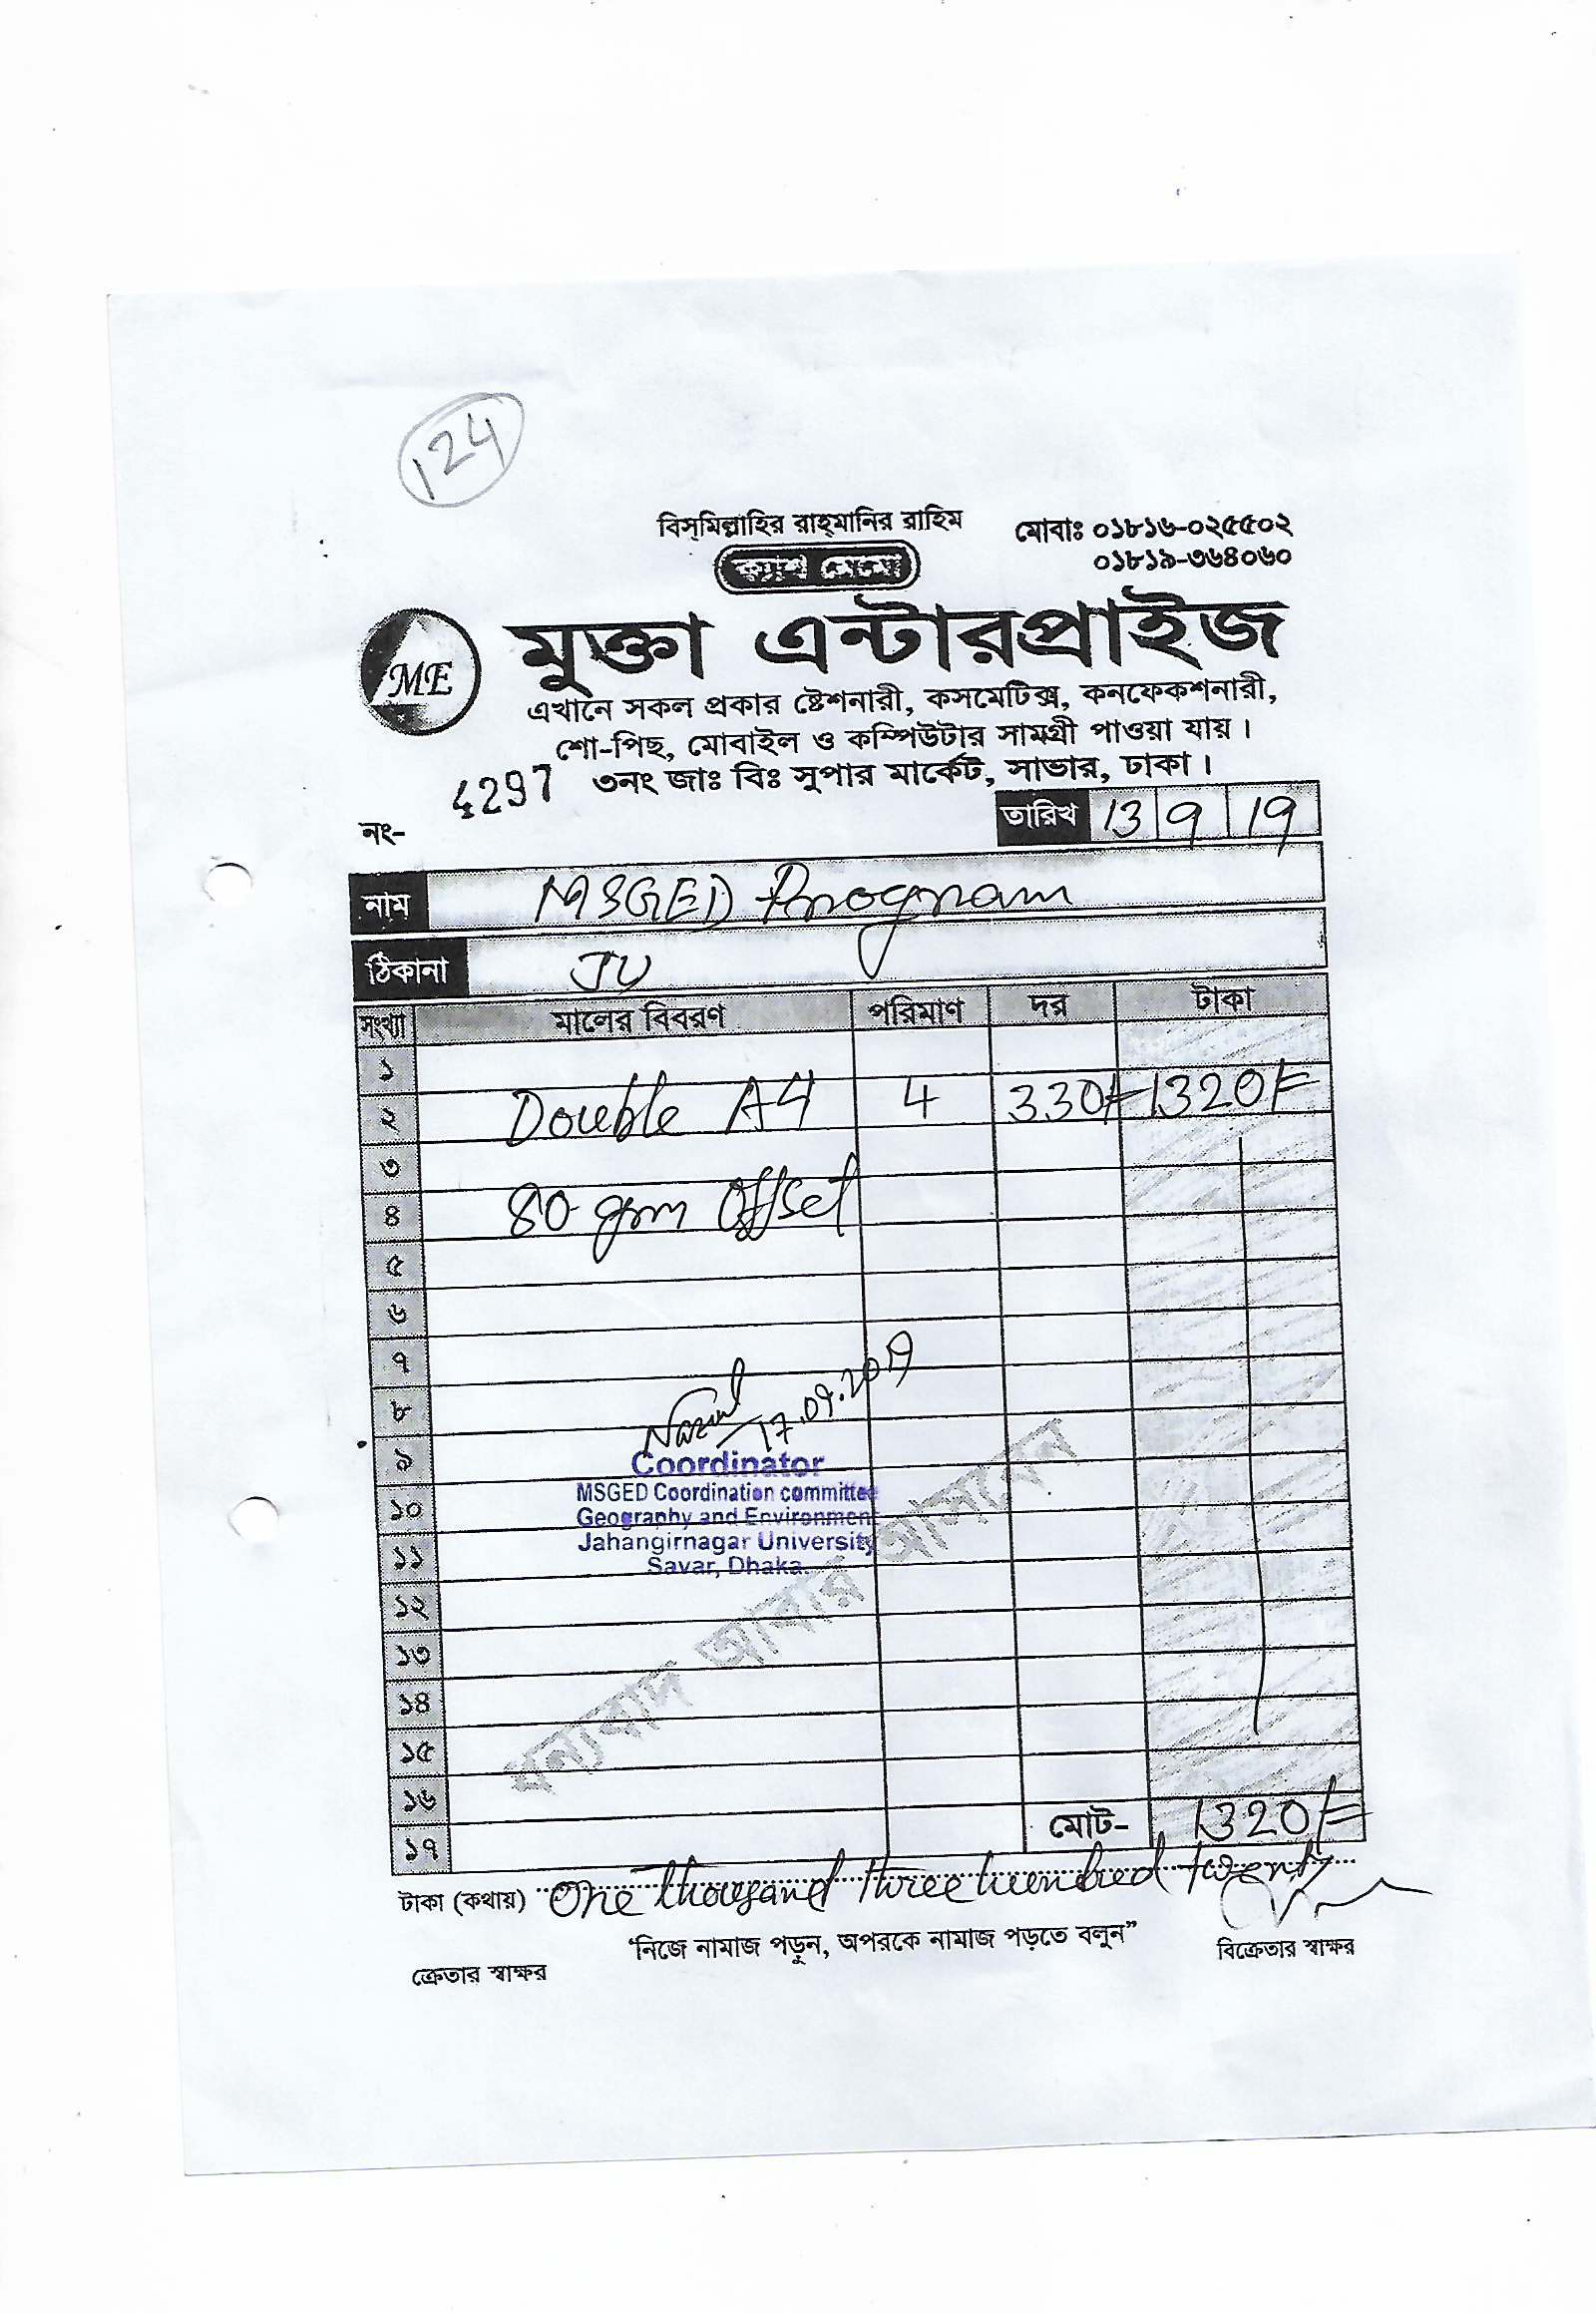 124
বিস্‌মিল্লাহির রাহ্‌মানির রাহিম
মোবাঃ ০১৮১৬-০২৫৫০২
০১৮১৯-৩৬৪০৬০
ক্যাশ মেমো
ME
মুক্তা এন্টারপ্রাইজ
এখানে সকল প্রকার ষ্টেশনারী, কসমেটিক্স, কনফেকশনারী,
শো-পিছ, মোবাইল ও কম্পিউটার সামগ্রী পাওয়া যায়।
৩নং জাঃ বিঃ সুপার মার্কেট, সাভার, ঢাকা।
নং- 4297
তারিখ 13 9 19
নাম MSGED Program
ঠিকানা JU
সংখ্যা মালের বিবরণ পরিমাণ দর টাকা
১
২ Double A4 4 330/= 1320/=
৩
৪ 80 gm Offset
৫
৬
৭
৮ 17.09.2019
৯ Coordinator
১০ MSGED Coordination committee
Geography and Environment
১১ Jahangirnagar University
Savar, Dhaka.
১২
১৩
১৪
১৫
১৬
১৭ মোট- 1320/=
ধন্যবাদ আবার আসবেন
টাকা (কথায়) One thousand three hundred twenty
"নিজে নামাজ পড়ুন, অপরকে নামাজ পড়তে বলুন"
ক্রেতার স্বাক্ষর
বিক্রেতার স্বাক্ষর